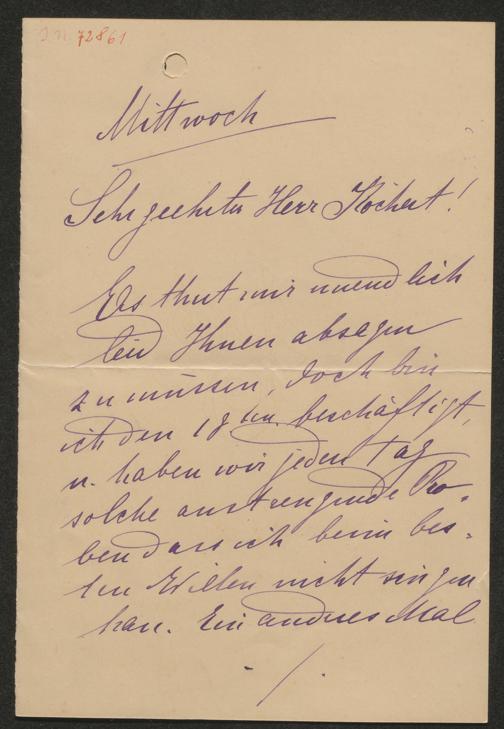 I.N. 72861
Mittwoch
Sehr geehrter Herr Köchert!
Es thut mir unendlich
leid Ihnen absagen
zu müssen, doch bin
ich den 18ten beschäftigt,
u. haben wir jeden Tag
solche anstrengende Pro-
ben dass ich beim bes-
ten Willen nicht singen
kan. Ein andres Mal
./.